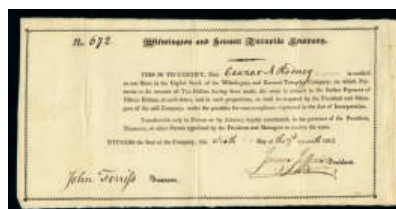 No. 672 Wilmington and Kennett Turnpike Company.
THIS IS TO CERTIFY, That Caesar A Rodney is entitled
to one Share in the Capital Stock of the Wilmington and Kennett Turnpike Company, on which Pay-
ments to the amount of Ten Dollars having been made, the same is subject to the further Payment of
Fifteen Dollars, at such times, and in such proportions, as shall be required by the President and Mana-
gers of the said Company, under the penalties for non-compliance expressed in the Act of Incorporation.
Transferable only in Person or by Attorney legally constituted, in the presence of the President,
Treasurer, or other Person appointed by the President and Managers to receive the same.
WITNESS the Seal of the Company, this day of the month 181
President.
John Torriss Treasurer.